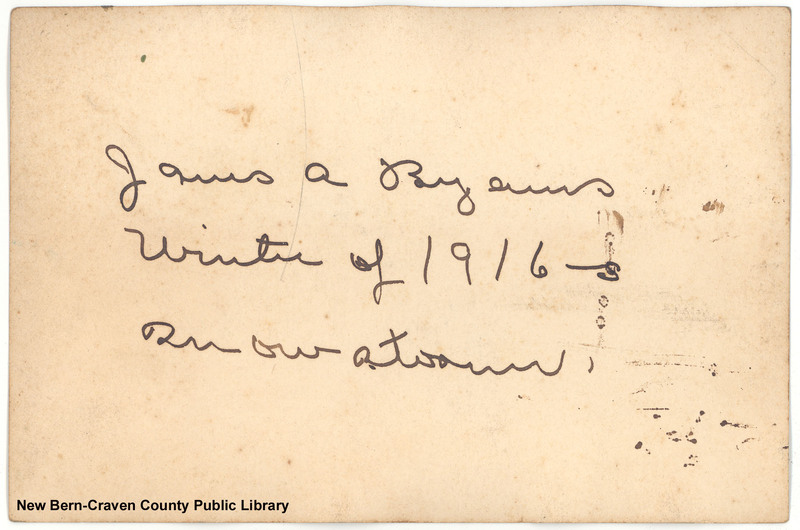 James A Bryans
Winter of 1916 - s
Snow storm
New Bern-Craven County Public Library